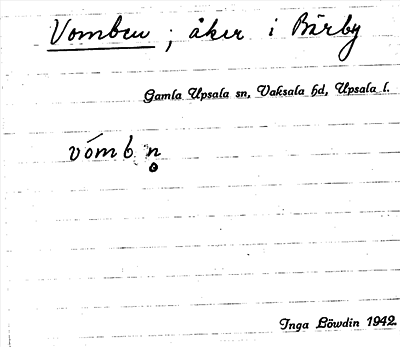 Vomben ; åker i Bärby
Gamla Upsala sn, Vaksala hd, Upsala l.
vómb n̥
Inga Löwdin 1942.